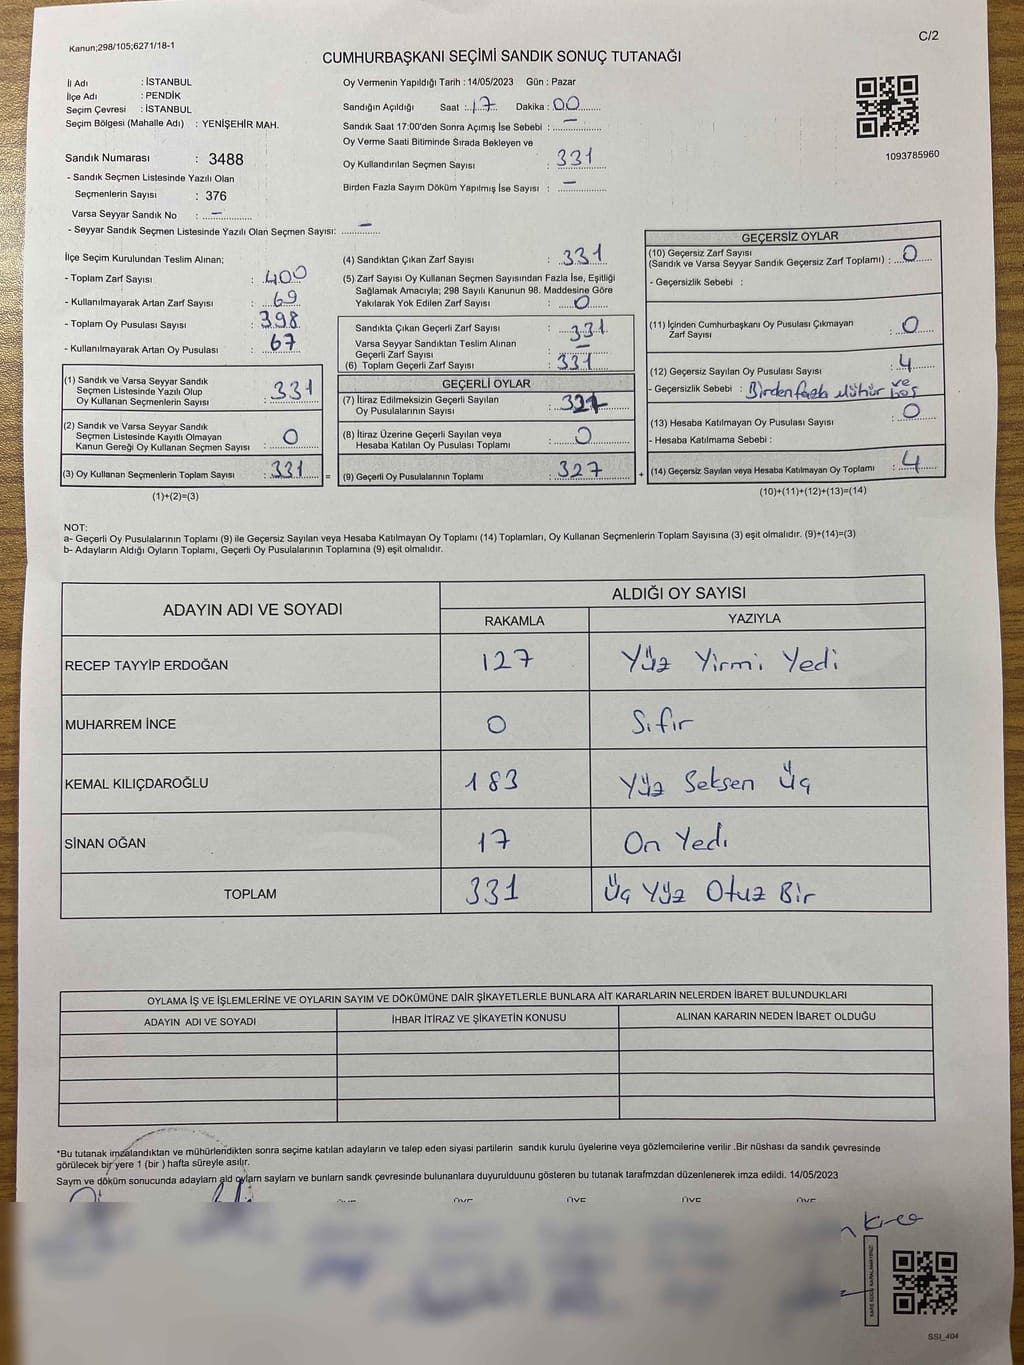 Kanun;298/105;6271/18-1
C/2
CUMHURBAŞKANI SEÇİMİ SANDIK SONUÇ TUTANAĞI
İl Adı : İSTANBUL
İlçe Adı : PENDİK
Seçim Çevresi : İSTANBUL
Seçim Bölgesi (Mahalle Adı) : YENİŞEHİR MAH.
Sandık Numarası : 3488
- Sandık Seçmen Listesinde Yazılı Olan
Seçmenlerin Sayısı : 376
Varsa Seyyar Sandık No : –
- Seyyar Sandık Seçmen Listesinde Yazılı Olan Seçmen Sayısı: –
Oy Vermenin Yapıldığı Tarih : 14/05/2023 Gün : Pazar
Sandığın Açıldığı Saat : 17 Dakika : 00
Sandık Saat 17:00'den Sonra Açımış İse Sebebi : –
Oy Verme Saati Bitiminde Sırada Bekleyen ve
Oy Kullandırılan Seçmen Sayısı : 331
Birden Fazla Sayım Döküm Yapılmış İse Sayısı : –
1093785960
İlçe Seçim Kurulundan Teslim Alınan;
- Toplam Zarf Sayısı : 400
- Kullanılmayarak Artan Zarf Sayısı : 69
- Toplam Oy Pusulası Sayısı : 398
- Kullanılmayarak Artan Oy Pusulası : 67
(1) Sandık ve Varsa Seyyar Sandık
Seçmen Listesinde Yazılı Olup
Oy Kullanan Seçmenlerin Sayısı : 331
(2) Sandık ve Varsa Seyyar Sandık
Seçmen Listesinde Kayıtlı Olmayan
Kanun Gereği Oy Kullanan Seçmen Sayısı : 0
(3) Oy Kullanan Seçmenlerin Toplam Sayısı : 331
(1)+(2)=(3)
=
(4) Sandıktan Çıkan Zarf Sayısı : 331
(5) Zarf Sayısı Oy Kullanan Seçmen Sayısından Fazla İse, Eşitliği
Sağlamak Amacıyla; 298 Sayılı Kanunun 98. Maddesine Göre
Yakılarak Yok Edilen Zarf Sayısı : 0
Sandıkta Çıkan Geçerli Zarf Sayısı : 331
Varsa Seyyar Sandıktan Teslim Alınan
Geçerli Zarf Sayısı : –
(6) Toplam Geçerli Zarf Sayısı : 331
GEÇERLİ OYLAR
(7) İtiraz Edilmeksizin Geçerli Sayılan
Oy Pusulalarının Sayısı : 327
(8) İtiraz Üzerine Geçerli Sayılan veya
Hesaba Katılan Oy Pusulası Toplamı : 0
(9) Geçerli Oy Pusulalarının Toplamı : 327
+
GEÇERSİZ OYLAR
(10) Geçersiz Zarf Sayısı
(Sandık ve Varsa Seyyar Sandık Geçersiz Zarf Toplamı) : 0
- Geçersizlik Sebebi :
(11) İçinden Cumhurbaşkanı Oy Pusulası Çıkmayan
Zarf Sayısı : 0
(12) Geçersiz Sayılan Oy Pusulası Sayısı : 4
- Geçersizlik Sebebi : Birden fazla Mühür ve Boş
(13) Hesaba Katılmayan Oy Pusulası Sayısı : 0
- Hesaba Katılmama Sebebi :
(14) Geçersiz Sayılan veya Hesaba Katılmayan Oy Toplamı : 4
(10)+(11)+(12)+(13)=(14)
NOT:
a- Geçerli Oy Pusulalarının Toplamı (9) ile Geçersiz Sayılan veya Hesaba Katılmayan Oy Toplamı (14) Toplamları, Oy Kullanan Seçmenlerin Toplam Sayısına (3) eşit olmalıdır. (9)+(14)=(3)
b- Adayların Aldığı Oyların Toplamı, Geçerli Oy Pusulalarının Toplamına (9) eşit olmalıdır.
ADAYIN ADI VE SOYADI
ALDIĞI OY SAYISI
RAKAMLA YAZIYLA
RECEP TAYYİP ERDOĞAN 127 Yüz Yirmi Yedi
MUHARREM İNCE 0 Sıfır
KEMAL KILIÇDAROĞLU 183 Yüz Seksen Üç
SİNAN OĞAN 17 On Yedi
TOPLAM 331 Üç Yüz Otuz Bir
OYLAMA İŞ VE İŞLEMLERİNE VE OYLARIN SAYIM VE DÖKÜMÜNE DAİR ŞİKAYETLERLE BUNLARA AİT KARARLARIN NELERDEN İBARET BULUNDUKLARI
ADAYIN ADI VE SOYADI İHBAR İTİRAZ VE ŞİKAYETİN KONUSU ALINAN KARARIN NEDEN İBARET OLDUĞU
*Bu tutanak imzalandıktan ve mühürlendikten sonra seçime katılan adayların ve talep eden siyasi partilerin sandık kurulu üyelerine veya gözlemcilerine verilir .Bir nüshası da sandık çevresinde
görülecek bir yere 1 (bir ) hafta süreyle asılır.
Sayım ve döküm sonucunda adayların ald oylarn saylarn ve bunlarn sandk çevresinde bulunanlara duyurulduunu gösteren bu tutanak tarafmzdan düzenlenerek imza edildi. 14/05/2023
ÜYE ÜYE ÜYE ÜYE ÜYE
KARE KODU KARALAMAYINIZ!
SSI_404